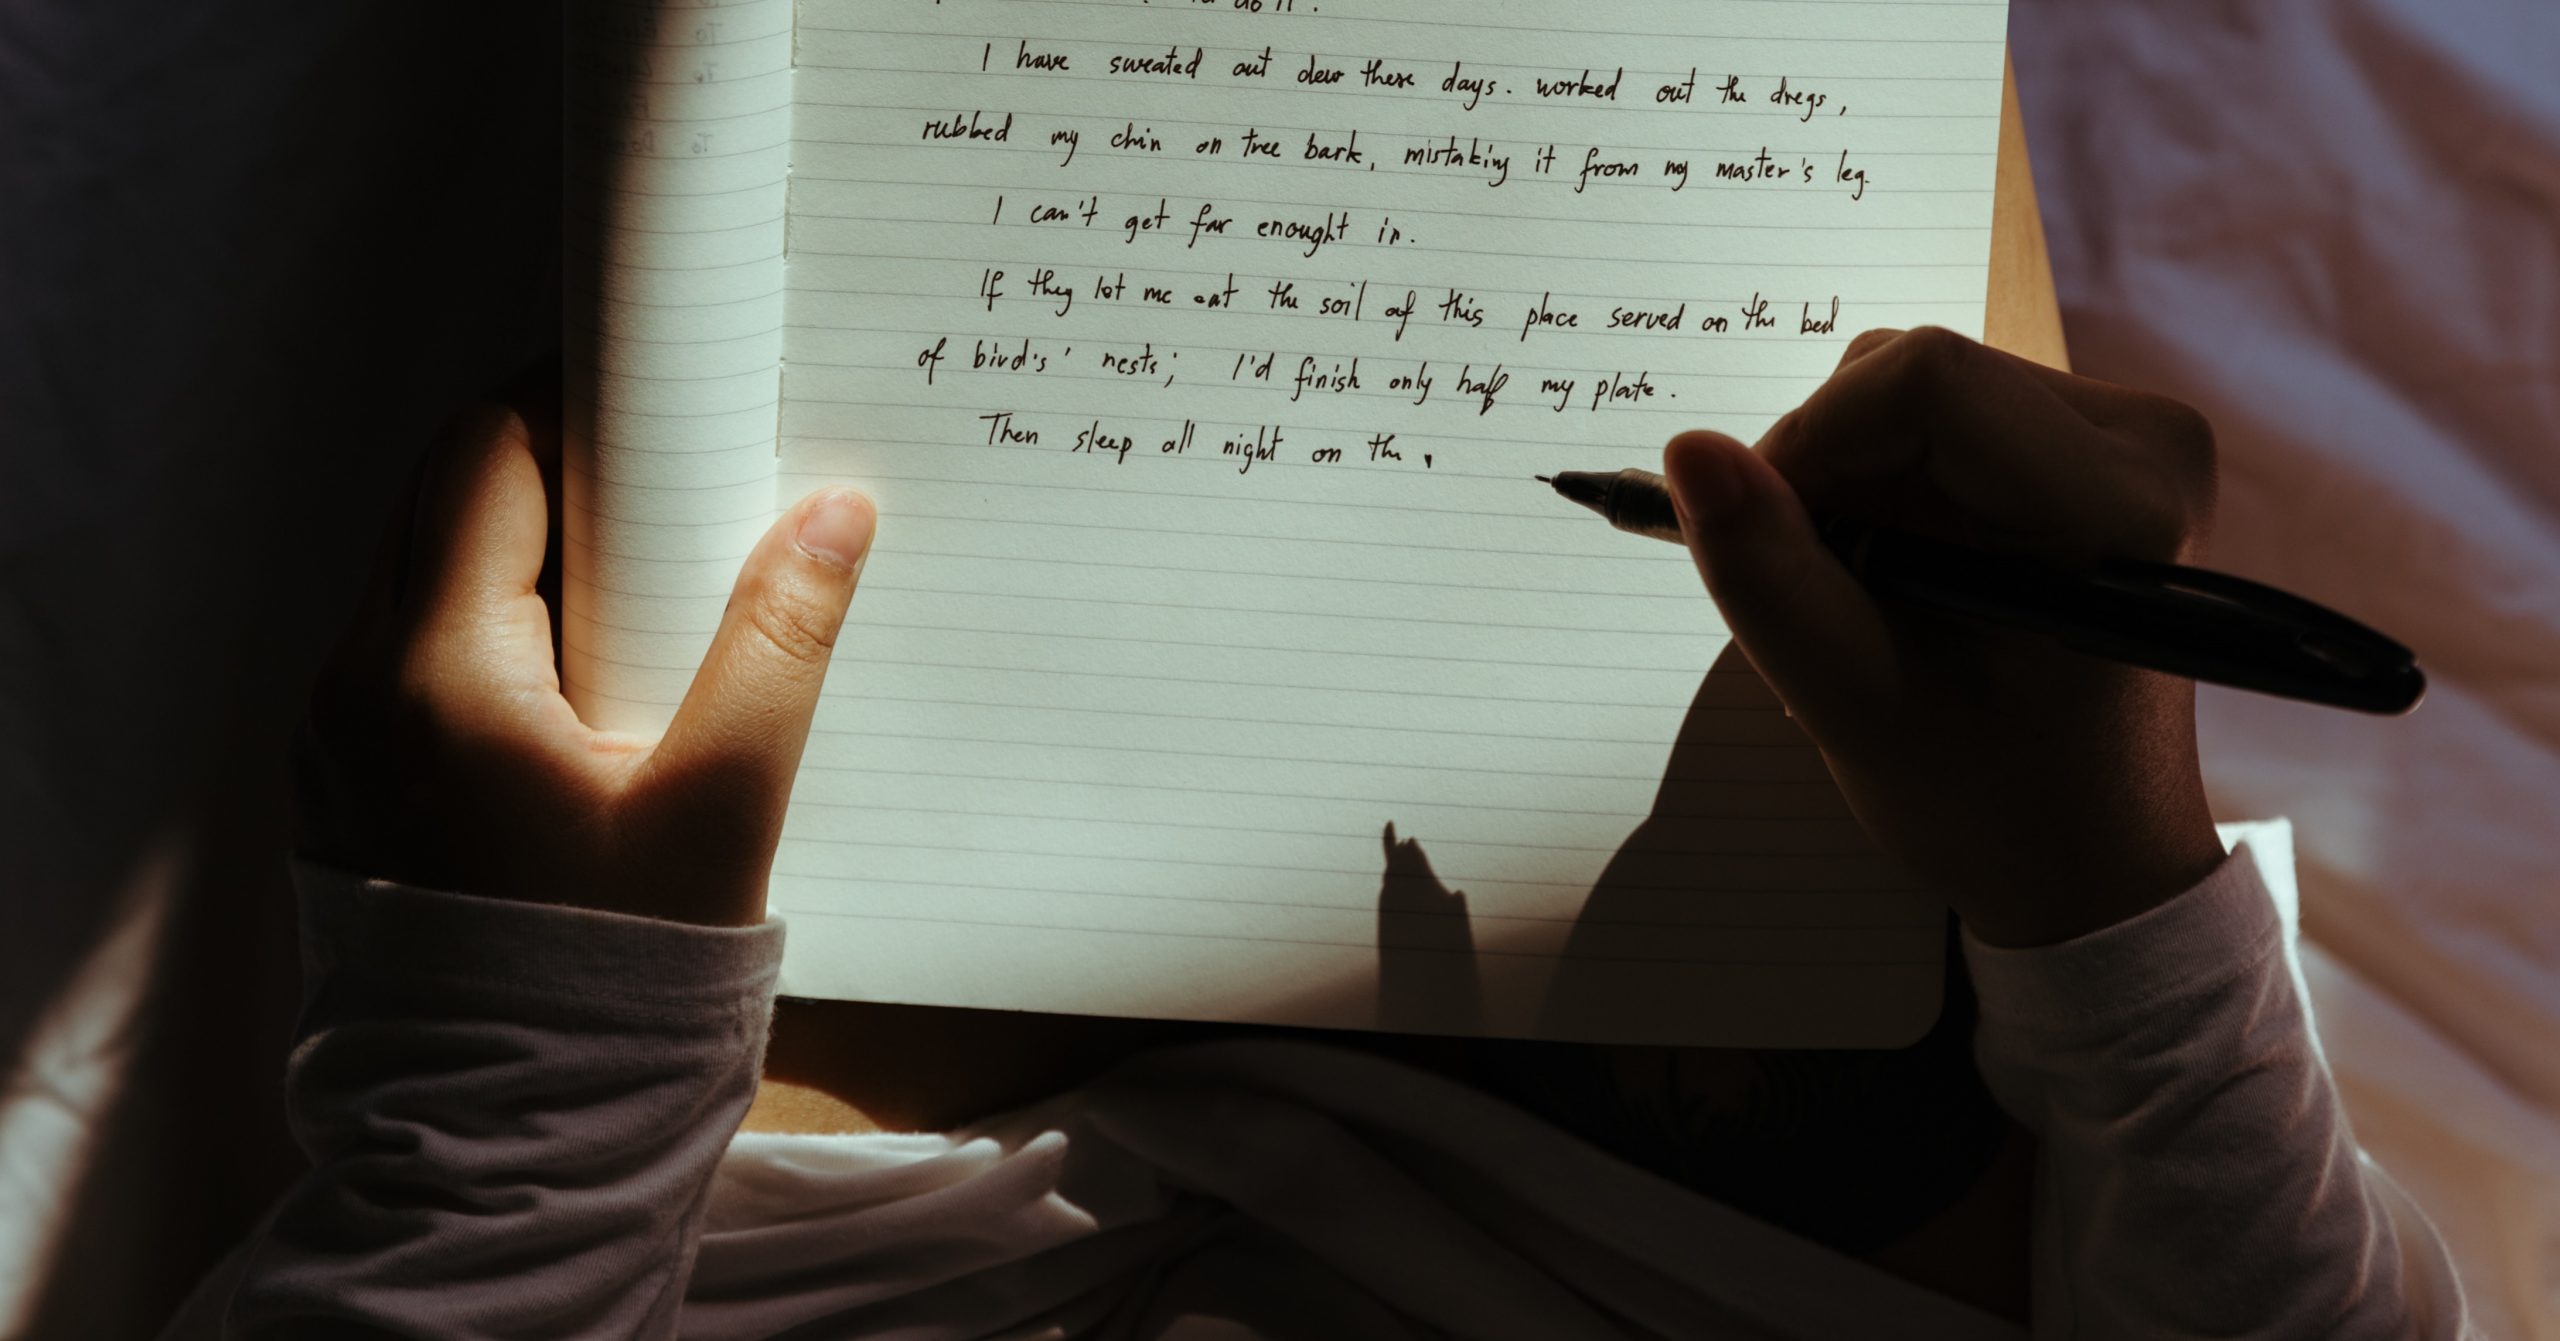 do it.
I have sweated out dew these days. worked out the dregs,
rubbed my chin on tree bark, mistaking it from my master's leg.
I can't get far enought in.
If they let me eat the soil of this place served on the bed
of bird's' nests; I'd finish only half my plate.
Then sleep all night on the